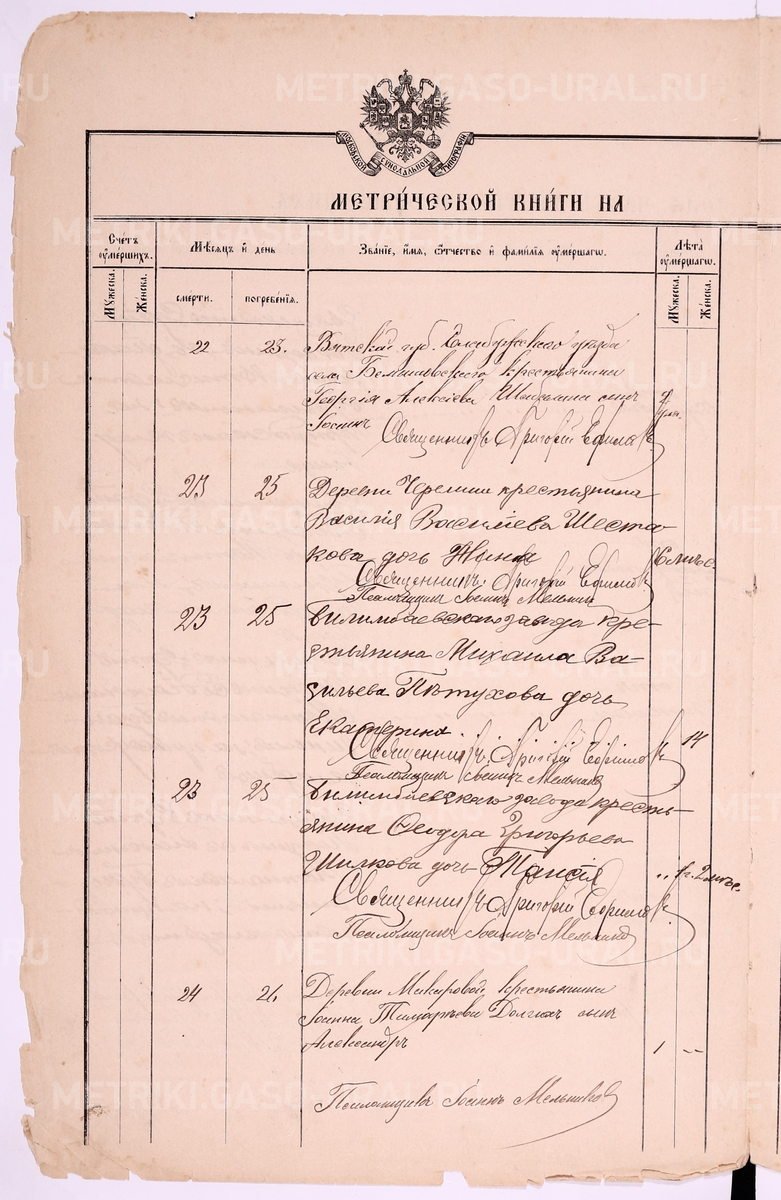 МЕТРИ́ЧЕСКОЙ КНИ́ГИ НА
Счетъ ѹме́ршихъ.
Мѣсяцъ и день
Зва́нїе, и́мя, ѻ́тчество и фами́лїя ѹме́ршагѡ.
Лѣта ѹме́ршагѡ.
Мꙋжеска.
Же́нска.
сме́рти.
погребе́нїя.
Мꙋжеска.
Же́нска.
22 23. Вятской губ. уѣзда
села крестьянина
Георгія Алексѣева сынъ
Іоаннъ
Священникъ Григорій Ефимовъ
23 25 Деревни Черемши крестьянина
Василія Васильева Шеста-
кова дочь 6 мѣс.
Священникъ Григорій Ефимовъ
Псаломщикъ Іоаннъ Мельников
23 25 Билимбаевскаго завода кре-
стьянина Михаила Ва-
сильева Пѣтухова дочь
Екатерина 14
Священникъ Григорій Ефимовъ
Псаломщикъ Іоаннъ Мельников
23 25 Билимбаевскаго завода кресть-
янина Ѳеодора Григорьева
Шилкова дочь Таисія „ 1 г. 2 мѣс.
Священникъ Григорій Ефимовъ
Псаломщикъ Іоаннъ Мельников
24 26 Деревни Макаровой крестьянина
Іоанна Долгих сынъ
Александръ 1 --
Псаломщикъ Іоаннъ Мельников
METRIKI.GASO-URAL.RU